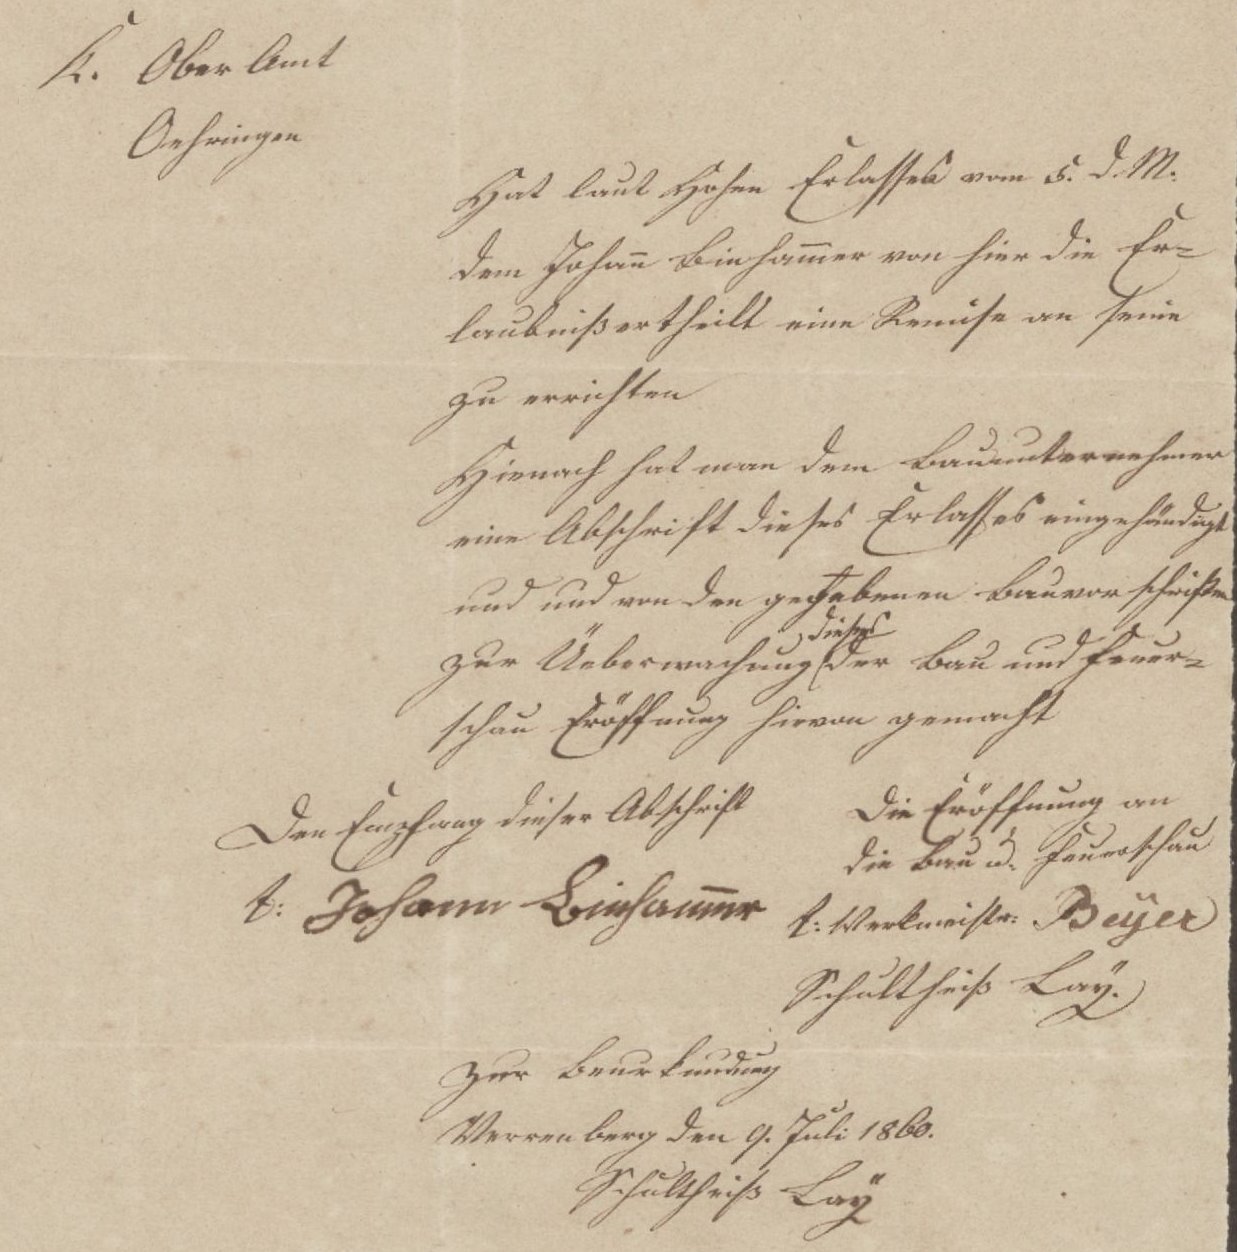 K. Ober Amt
Oehringen
Hat laut Hohen Erlasses vom 5. d. M.
dem Johañ Binham̄er von hier die Er=
laubniß ertheilt eine Remise an seine
zu errichten
Hienach hat man dem Bauunternehmer
eine Abschrift dieses Erlasses eingehändigt
und und von den gegebenen Bauvorschriften
zur Üeberwachung dieses der Bau und Feuer=
schau Eröffnung hievon gemacht
Den Empfang dieser Abschrift
t: Johann Binham̄er
Die Eröffnung an
die Bau u. Feuerschau
t: Werkmeistr: Beyer
Schultheiß Laÿ.
Zur Beurkundung
Verrenberg den 9. Juli 1860.
Schultheiß Laÿ